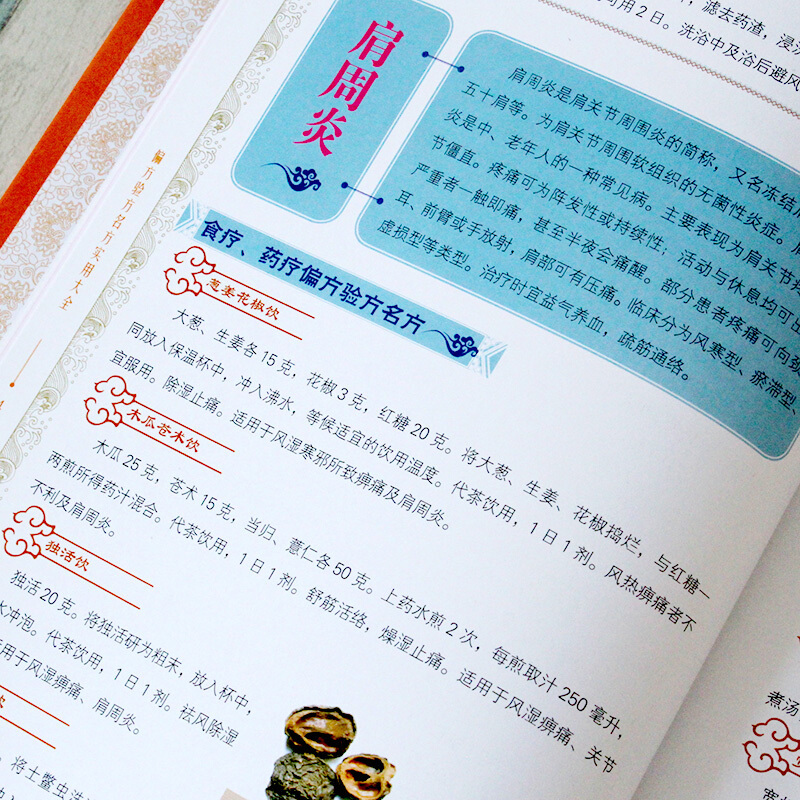 偏方验方名方实用大全
滤去药渣，浸
可用2日。洗浴中及浴后避风
肩周炎
肩周炎是肩关节周围炎的简称，又名冻结肩、
五十肩等。为肩关节周围软组织的无菌性炎症。
炎是中、老年人的一种常见病。主要表现为肩关节疼
节僵直。疼痛可为阵发性或持续性；活动与休息均可出
严重者一触即痛，甚至半夜会痛醒。部分患者疼痛可向颈
耳、前臂或手放射，肩部可有压痛。临床分为风寒型、瘀滞型、
虚损型等类型。治疗时宜益气养血，疏筋通络。
食疗、药疗偏方验方名方
葱姜花椒饮
大葱、生姜各15克，花椒3克，红糖20克。将大葱、生姜、花椒捣烂，与红糖一
同放入保温杯中，冲入沸水，等候适宜的饮用温度。代茶饮用，1日1剂。风热痹痛者不
宜服用。除湿止痛。适用于风湿寒邪所致痹痛及肩周炎。
木瓜苍术饮
木瓜25克，苍术15克，当归、薏仁各50克。上药水煎2次，每煎取汁250毫升，
两煎所得药汁混合。代茶饮用，1日1剂。舒筋活络，燥湿止痛。适用于风湿痹痛、关节
不利及肩周炎。
独活饮
独活20克。将独活研为粗末，放入杯中，
水冲泡。代茶饮用，1日1剂。祛风除湿
适用于风湿痹痛、肩周炎。
饮
将土鳖虫洗
煮汤